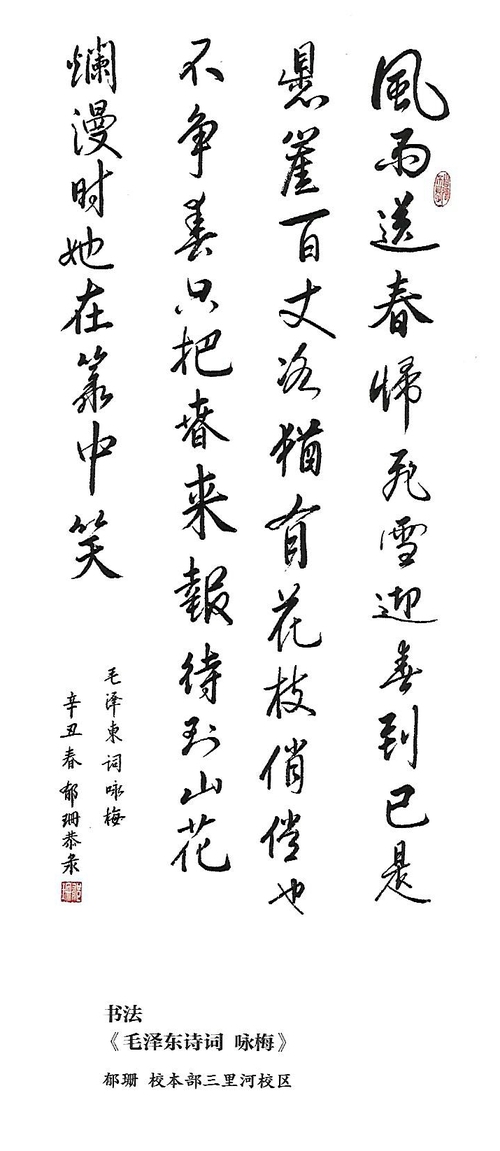 風雨送春歸飛雪迎春到已是
懸崖百丈冰猶有花枝俏俏也
不争春只把春来報待到山花
爛漫时她在叢中笑
毛泽東词咏梅
辛丑春郁珊恭录
书法
《毛泽东诗词 咏梅》
郁珊 校本部三里河校区